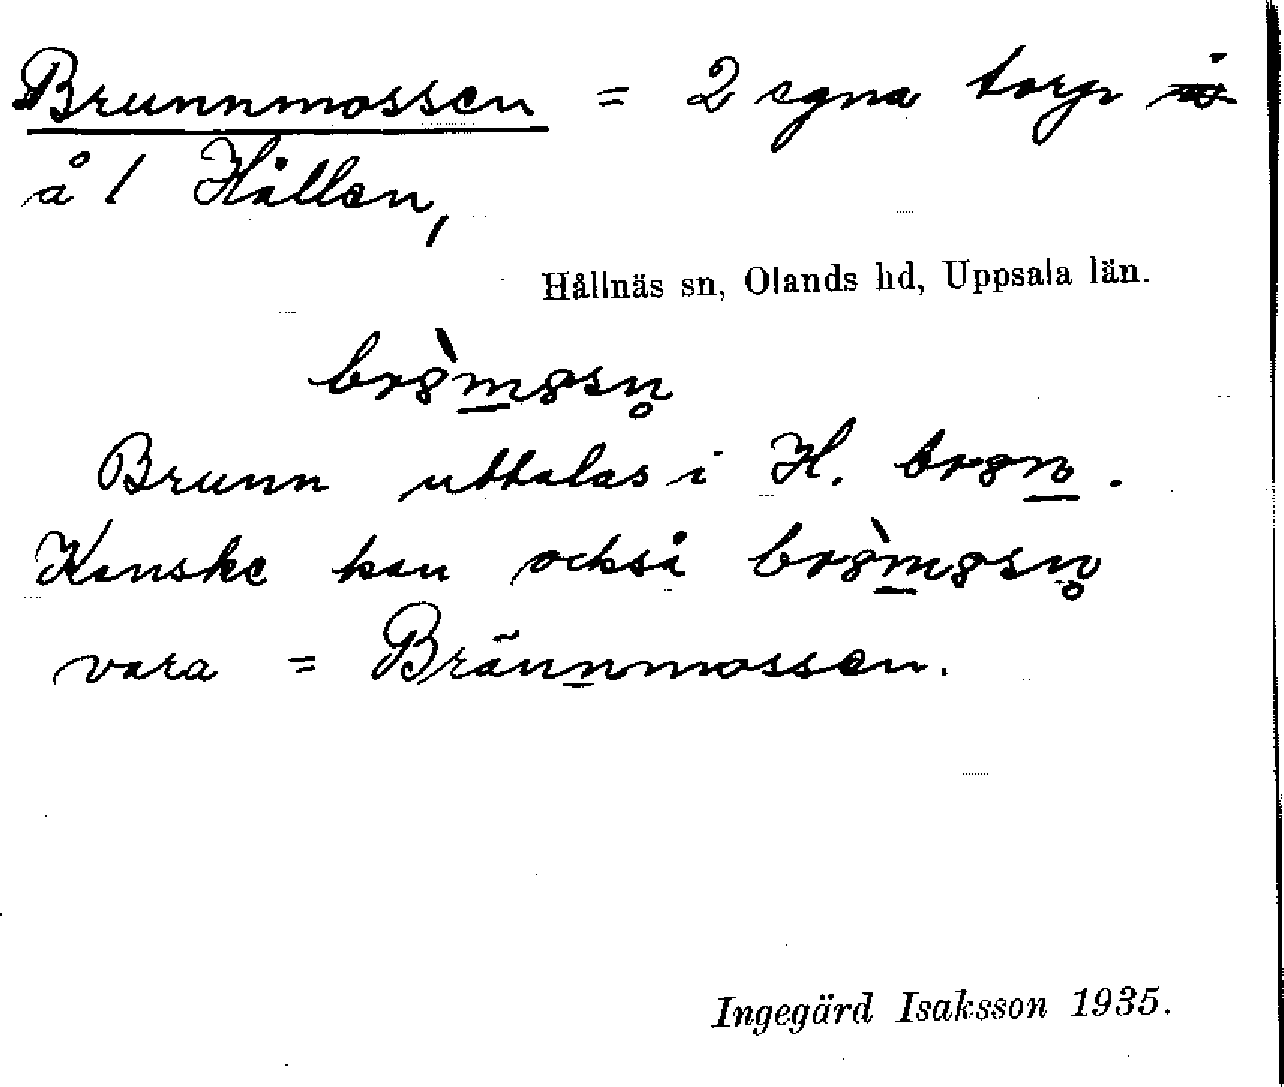 Brunnmossen = 2 egna torp
å 1 Hållen,
Hållnäs sn, Olands hd, Uppsala län.
brȣ̀m̲ȣsn̥
Brunn uttalas i H. brȣn̲.
Kanske kan också brȣ̀m̲ȣsn̥
vara = Brännmossen.
Ingegärd Isaksson 1935.